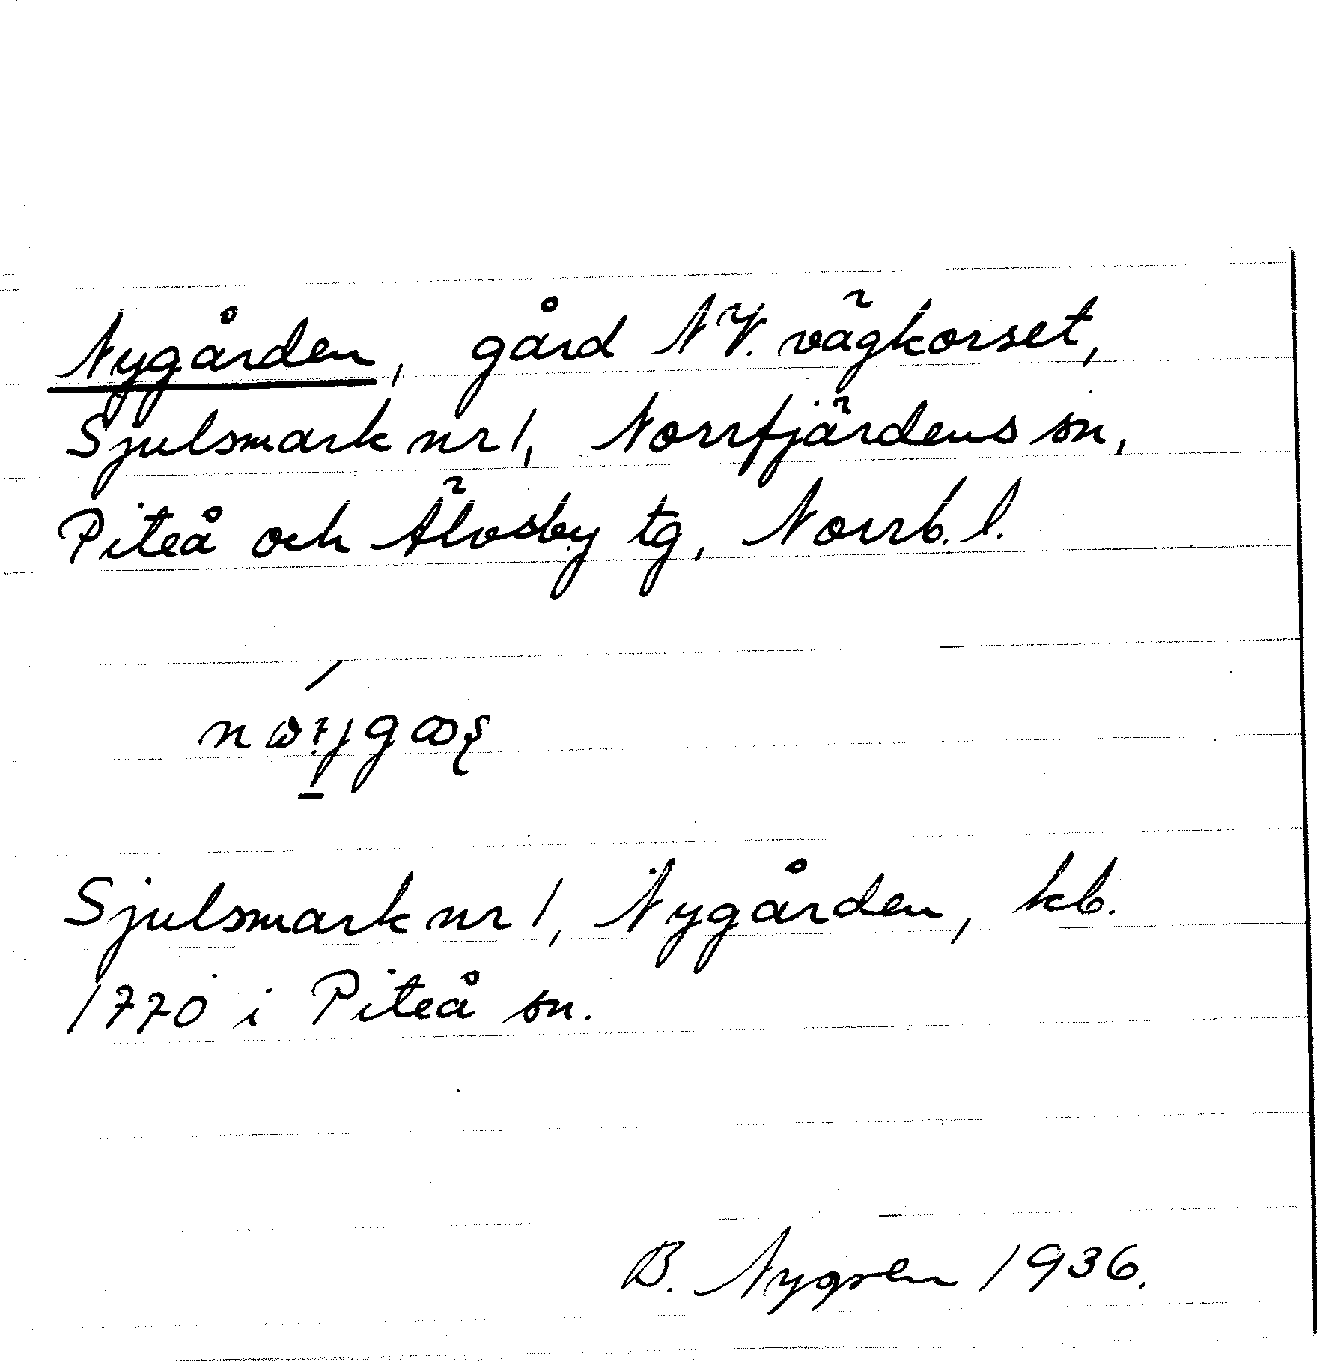 Nygården, gård NV. vägkorset,
Sjulsmark nr 1, Norrfjärdens sn,
Piteå och Älvsby tg, Norrb. l.
Sjulsmark nr 1, Nygården, kb.
1770 i Piteå sn.
B. Nygren 1936.